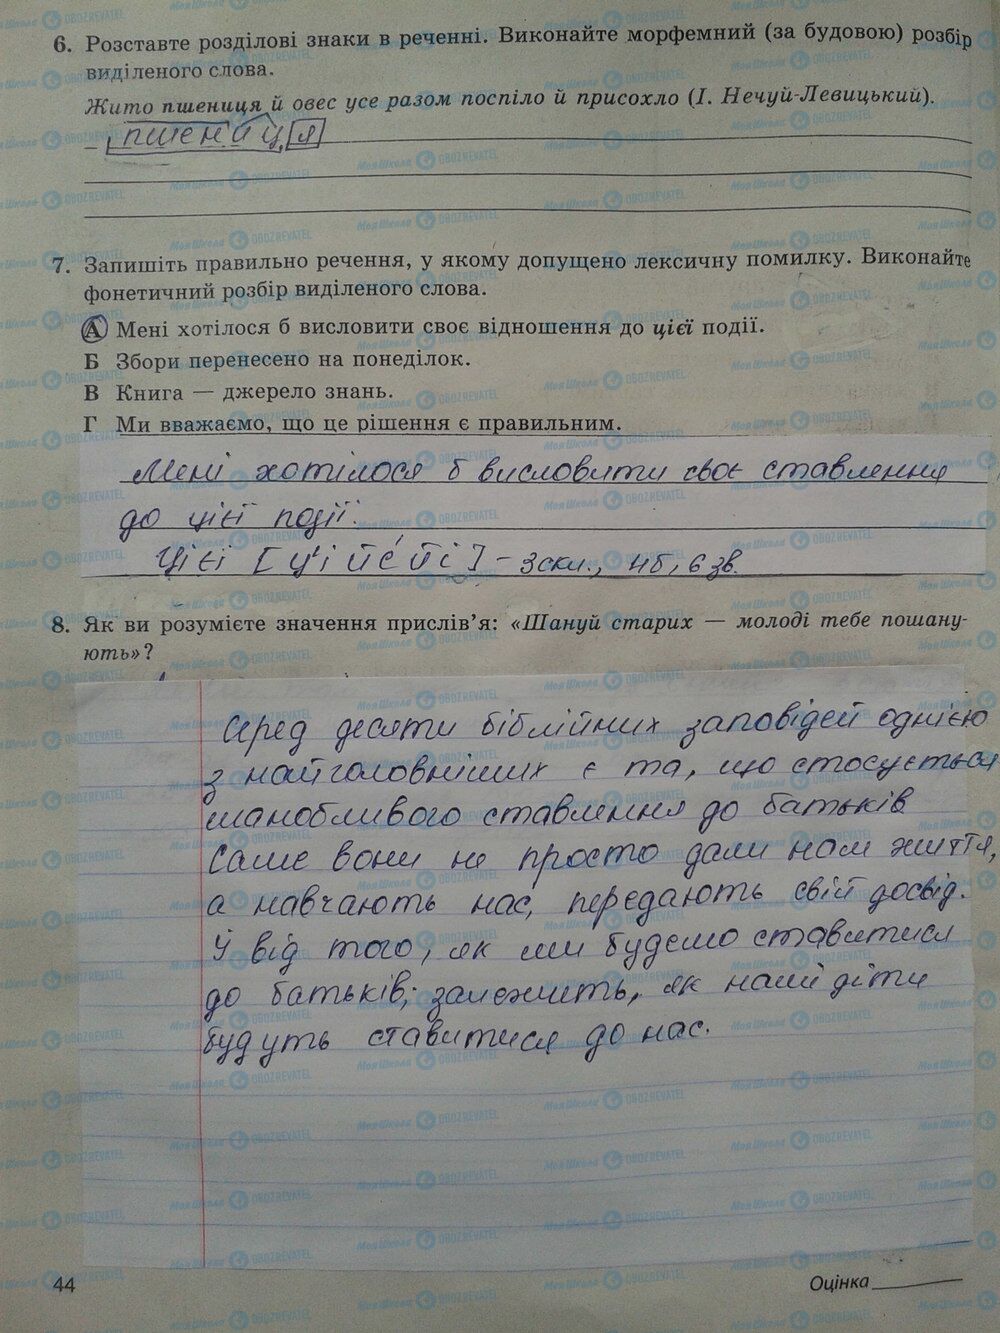 6. Розставте розділові знаки в реченні. Виконайте морфемний (за будовою) розбір
виділеного слова.
Жито пшениця й овес усе разом поспіло й присохло (І. Нечуй-Левицький).
пшениця
7. Запишіть правильно речення, у якому допущено лексичну помилку. Виконайте
фонетичний розбір виділеного слова.
А Мені хотілося б висловити своє відношення до цієї події.
Б Збори перенесено на понеділок.
В Книга — джерело знань.
Г Ми вважаємо, що це рішення є правильним.
Мені хотілося б висловити своє ставлення
до цієї події.
Цієї [ц'ійéйі] – 3 скл., 4б, 6 зв.
8. Як ви розумієте значення прислів’я: «Шануй старих — молоді тебе пошану-
ють»?
Серед десяти біблійних заповідей однією
з найголовніших є та, що стосується
шанобливого ставлення до батьків
Саме вони не просто дали нам життя,
а навчають нас, передають свій досвід.
Й від того, як ми будемо ставитися
до батьків, залежить, як наші діти
будуть ставитися до нас.
44
Оцінка
МояШкола OBOZREVATEL